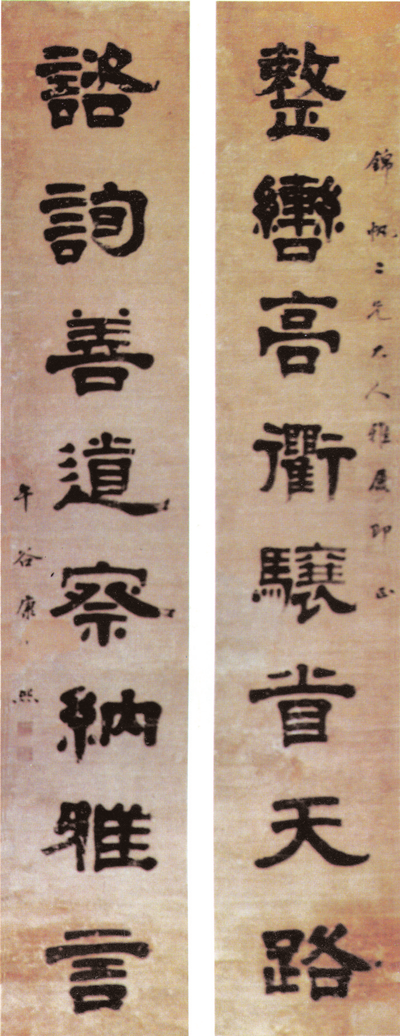 錦帆二兄大人雅屬即正
整轡高衢驤首天路
諮詢善道察納雅言
午谷康